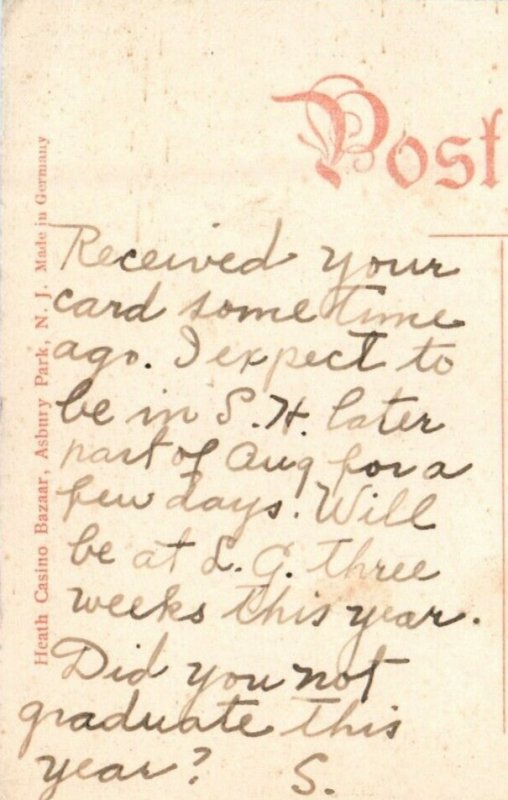 Post
Heath Casino Bazaar, Asbury Park, N. J. Made in Germany
Received your
card some time
ago. I expect to
be in S. H. later
part of Aug for a
few days. Will
be at L. G. three
weeks this year.
Did you not
graduate this
year? S.